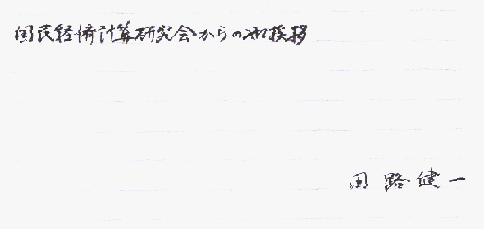 国民経済計算研究会からの御挨拶
田路健一